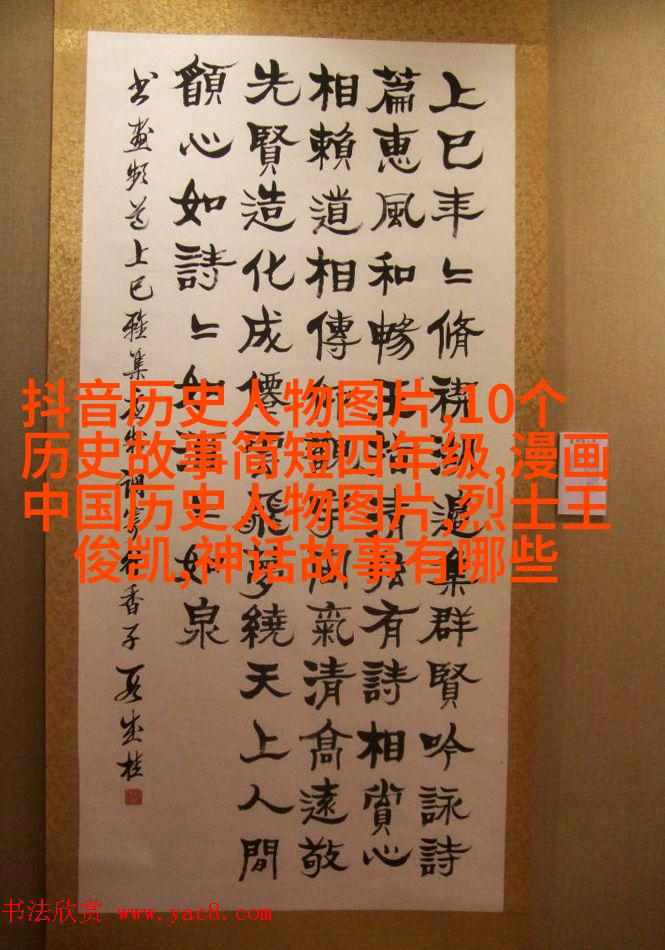 上巳年〻脩禊邊集群賢吟詠詩
篇惠風和暢有詩相賞心
相賴道相傳氣清高遠敬
先賢造化成僊飛夢繞天上人間
心如詩〻如〻如泉
上巳雅集香子
抖音历史人物图片,10个
历史故事简短四年级,漫画
中国历史人物图片,烈士王
俊凯,神话故事有哪些
书法欣赏 www.yac8.com